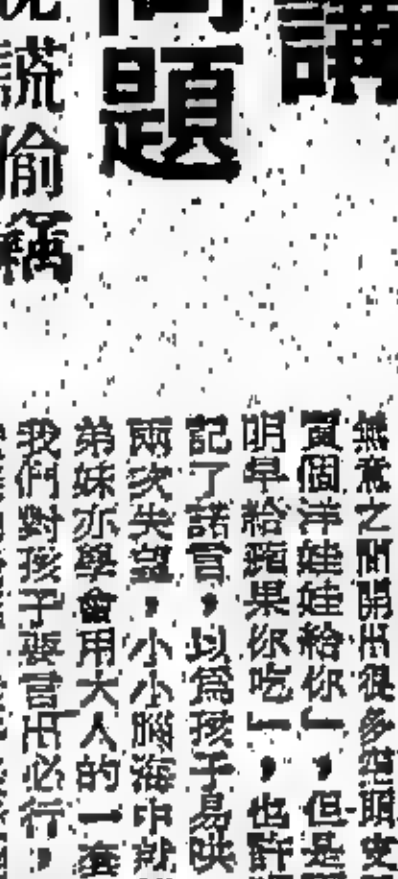 講
問題
說謊偷竊
無意之間開出很多空頭支
買個洋娃娃給你」，但是
明早給蘋果你吃」，也許
記了諾言，以為孩子易哄
兩次失望，小小腦海中就
弟妹亦學會用大人的一套
我們對孩子要言出必行，